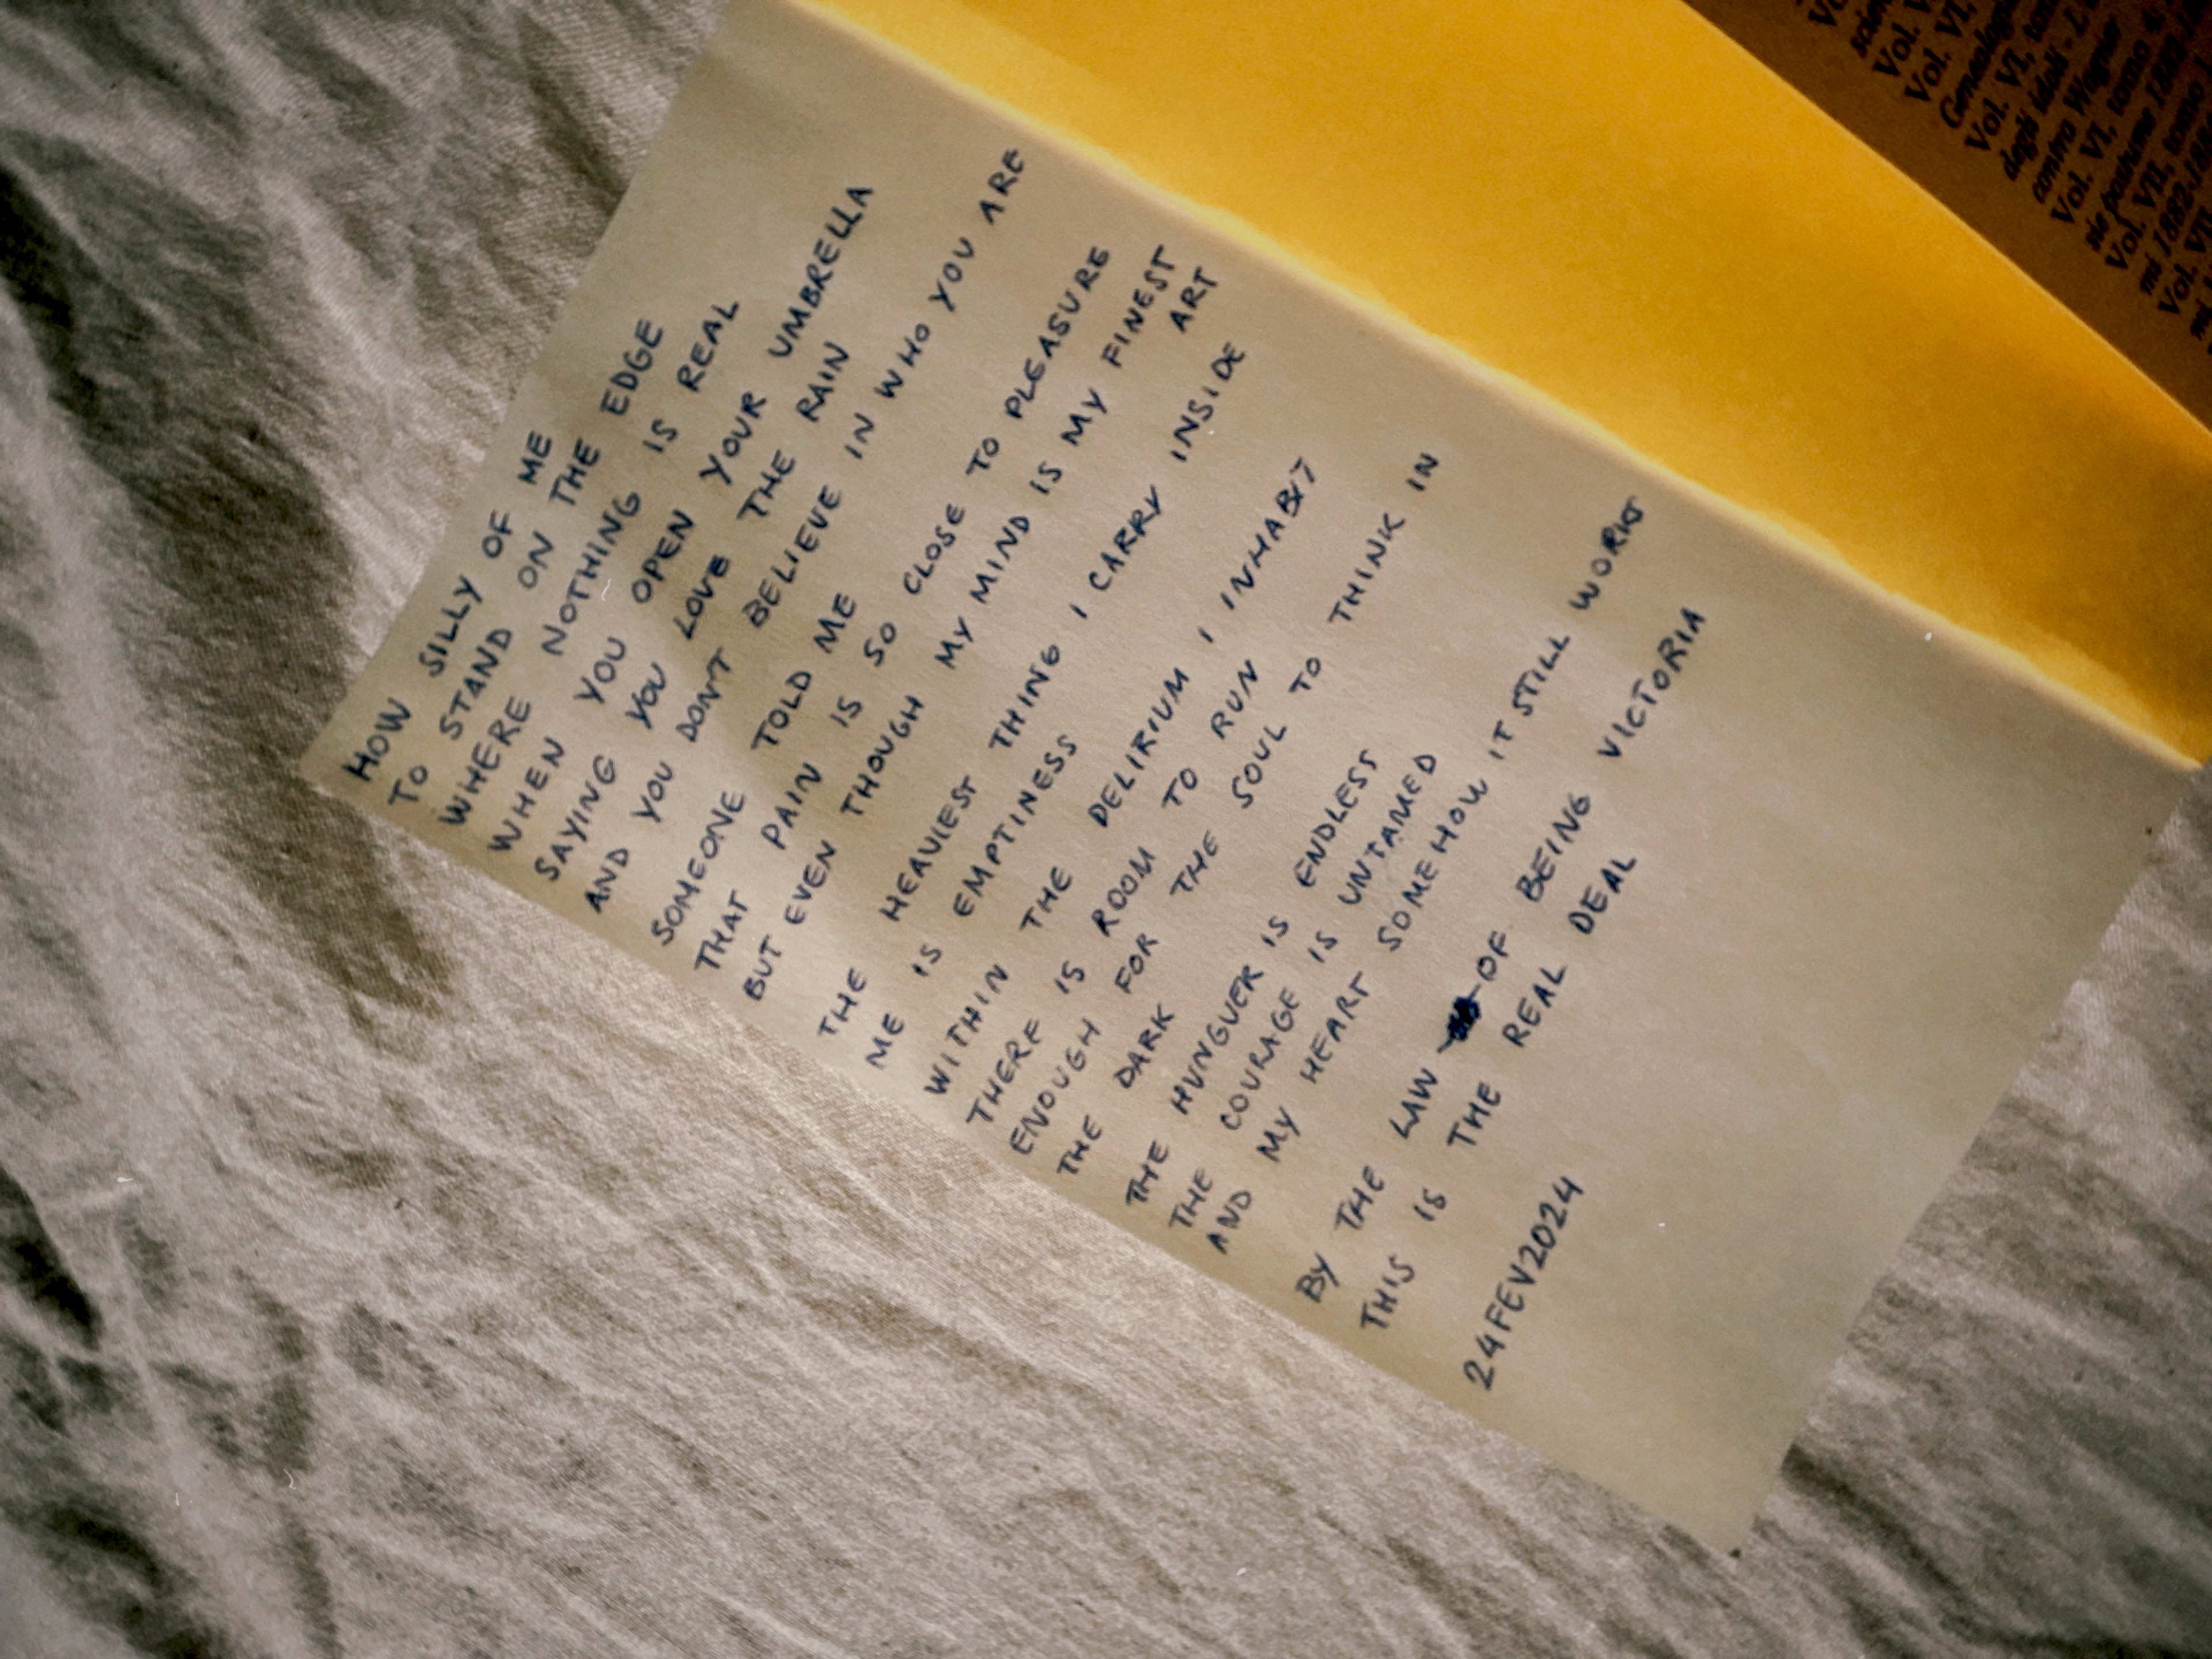 HOW SILLY OF ME
TO STAND ON THE EDGE
WHERE NOTHING IS REAL
WHEN YOU OPEN YOUR UMBRELLA
SAYING YOU LOVE THE RAIN
AND YOU DON'T BELIEVE IN WHO YOU ARE
SOMEONE TOLD ME
THAT PAIN IS SO CLOSE TO PLEASURE
BUT EVEN THOUGH MY MIND IS MY FINEST
ART
THE HEAVIEST THING I CARRY INSIDE
ME IS EMPTINESS
WITHIN THE DELIRIUM I INHABIT
THERE IS ROOM TO RUN
ENOUGH FOR THE SOUL TO THINK IN
THE DARK
THE HUNGUER IS ENDLESS
THE COURAGE IS UNTAMED
AND MY HEART SOMEHOW IT STILL WORKS
BY THE LAW OF BEING VICTORIA
THIS IS THE REAL DEAL
24FEV2024
Vol. VI,
Vol. VI, tomo
Vol. VI, tomo
Vol. VII, tomo